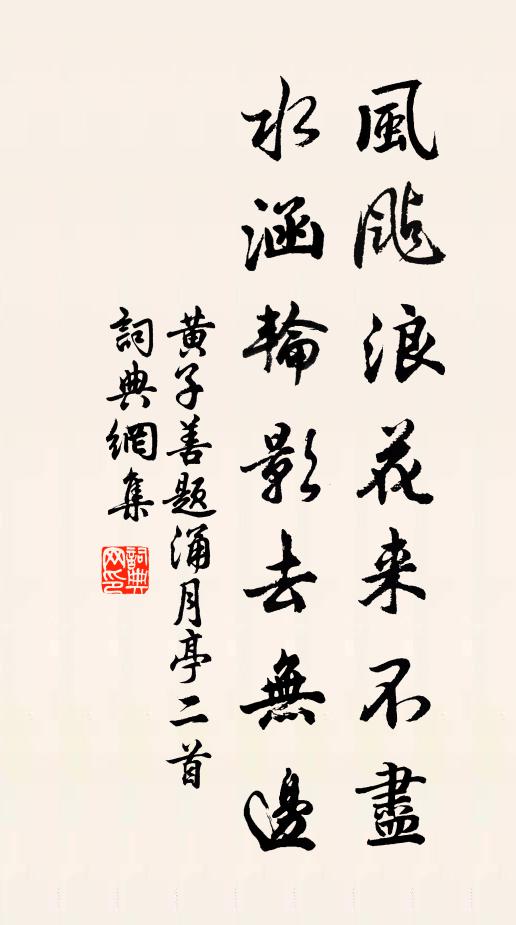 風颭浪花来不盡
水涵輪影去無邊
黄子善題涌月亭二首
詞典網集
詞典网印